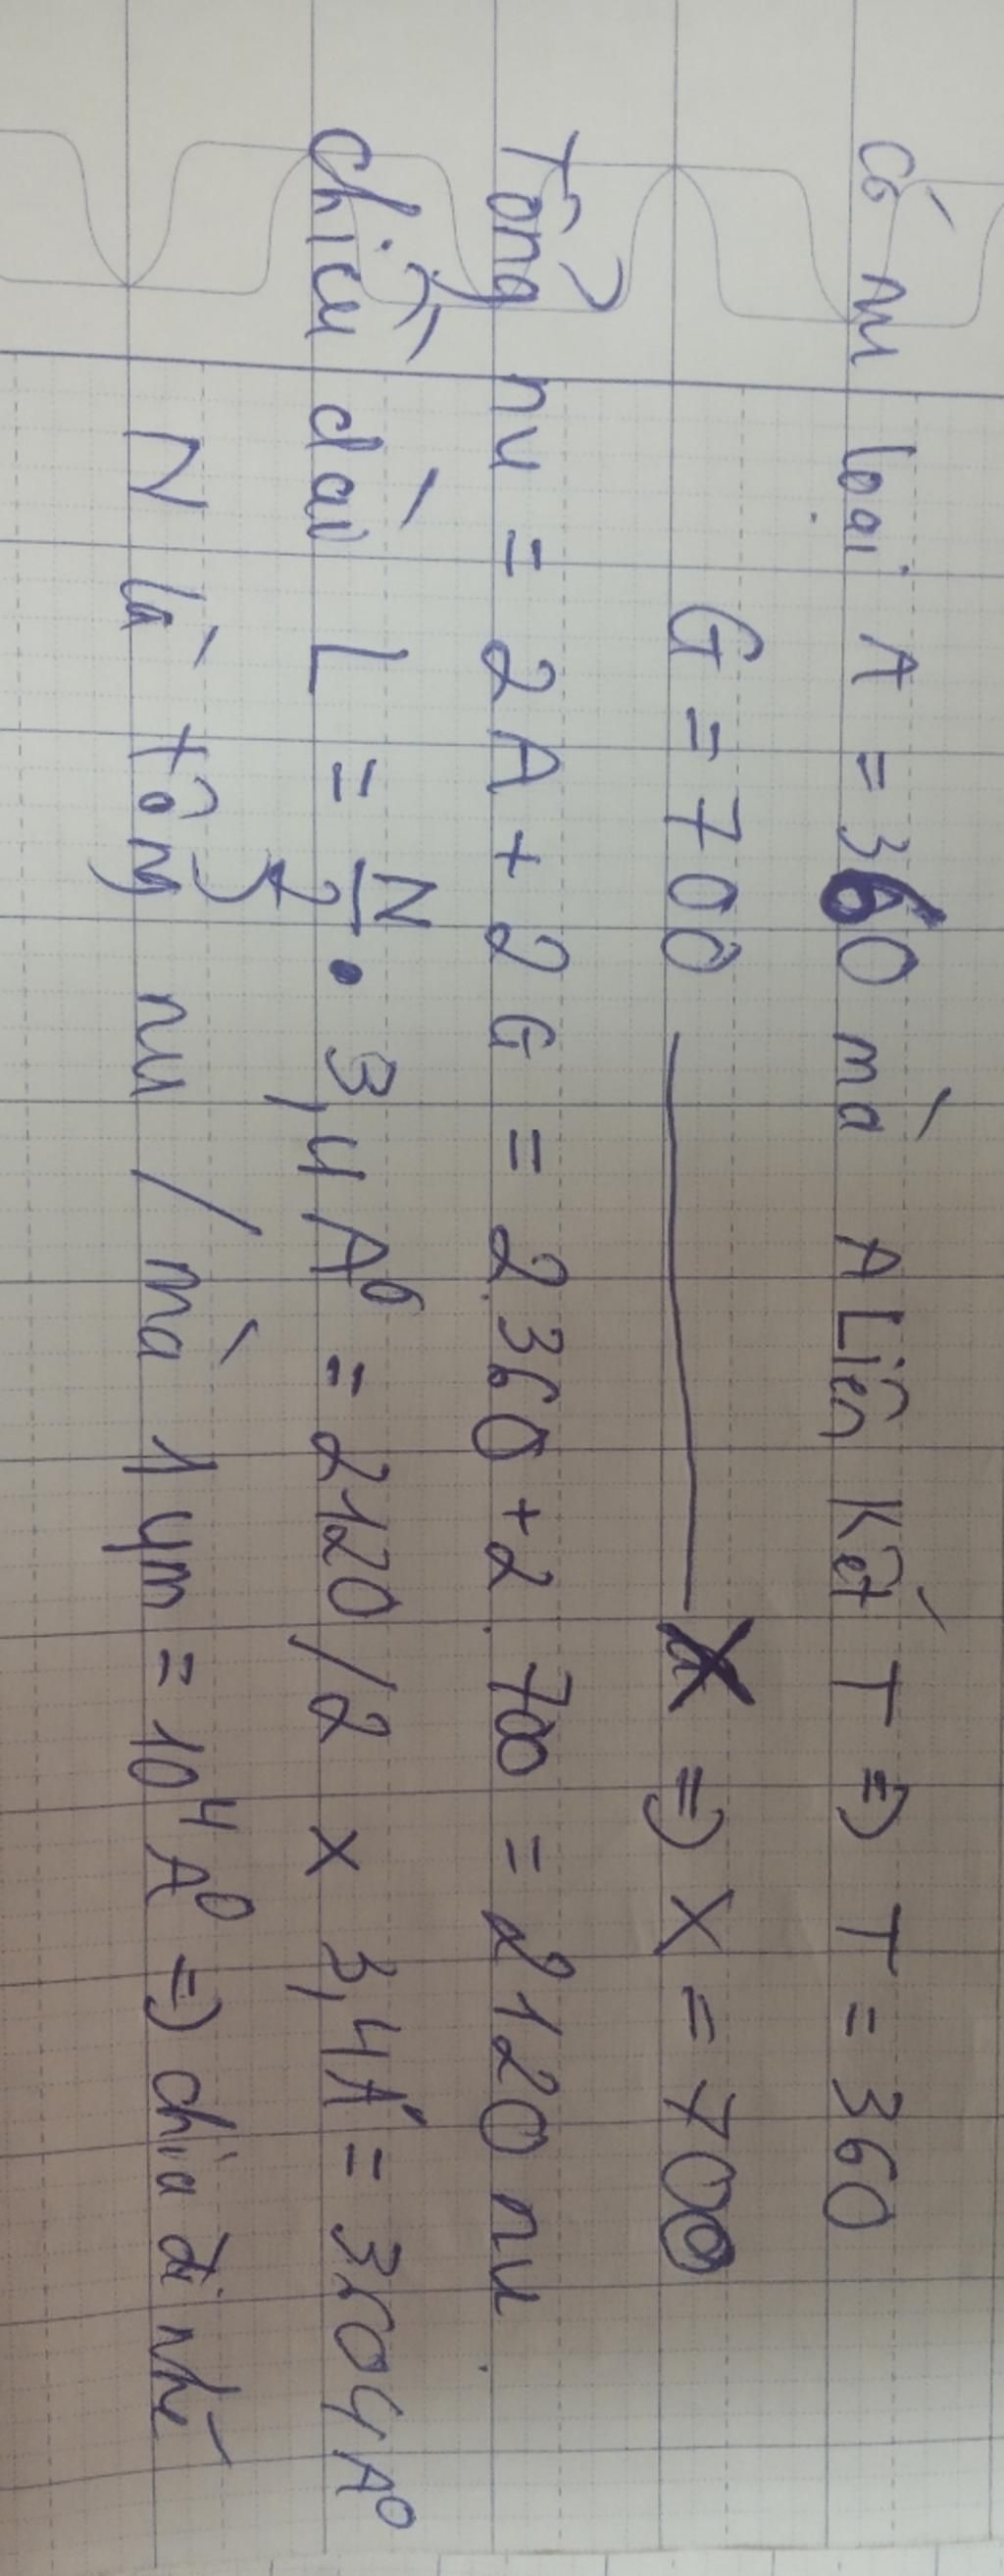 Có nu loại A = 360 mà A Liên Kết T => T = 360
G = 700 X => X = 700
Tổng nu = 2A + 2G = 2.360 + 2.700 = 2120 nu.
Chiều dài L = N/2 . 3,4A⁰ = 2120/2 x 3,4A⁰ = 3604A⁰
N là tổng nu / mà 1 ym = 10⁴A⁰ => chia đi nhé